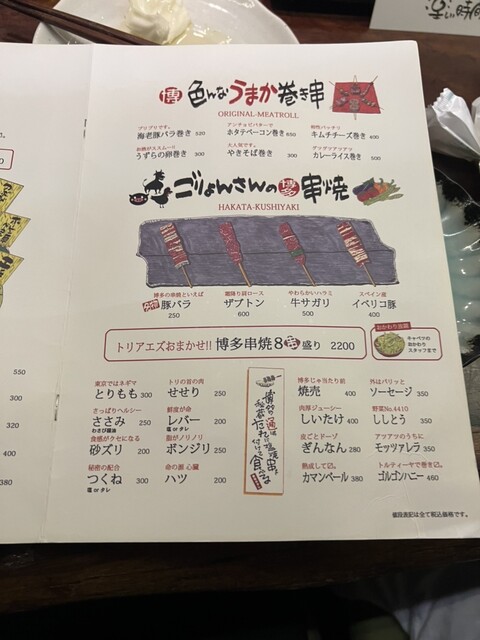 博 色んなうまか巻き串
ORIGINAL-MEATROLL
プリプリです。
海老豚バラ巻き 520
アンチョビバターで
ホタテベーコン巻き 650
相性バッチリ
キムチチーズ巻き 400
お酒がススム〜!!
うずらの卵巻き 300
大人気です。
やきそば巻き 300
アツアツアツアツ
カレーライス巻き 500
ごりょんさんの博多串焼
HAKATA-KUSHIYAKI
博多の串焼といえば
豚バラ
250
霜降り肩ロース
ザブトン
600
やわらかいハラミ
牛サガリ
500
スペイン産
イベリコ豚
400
トリアエズおまかせ!! 博多串焼8串盛り 2200
おかわり自由
キャベツの
おかわり
スタッフまで
東京ではネギマ
とりもも 300
トリの首の肉
せせり 250
博多じゃ当たり前
焼売 400
外はパリッと
ソーセージ 350
さっぱりヘルシー
ささみ 250
わさび醤油
鮮度が命
レバー 200
塩 or タレ
肉厚ジューシー
しいたけ 400
野菜No.4410
ししとう 350
食感がクセになる
砂ズリ 200
脂がノリノリ
ボンジリ 250
皮ごとドーゾ
ぎんなん 280
アツアツのうちに
モッツァレラ 350
秘密の配合
つくね 300
塩 or タレ
命の源 心臓
ハツ 200
熟成して〼。
カマンベール 380
トルティーヤで巻き〼。
ゴルゴンハニー 460
値段表記は全て税込価格です。
550
300
320
350
400
380